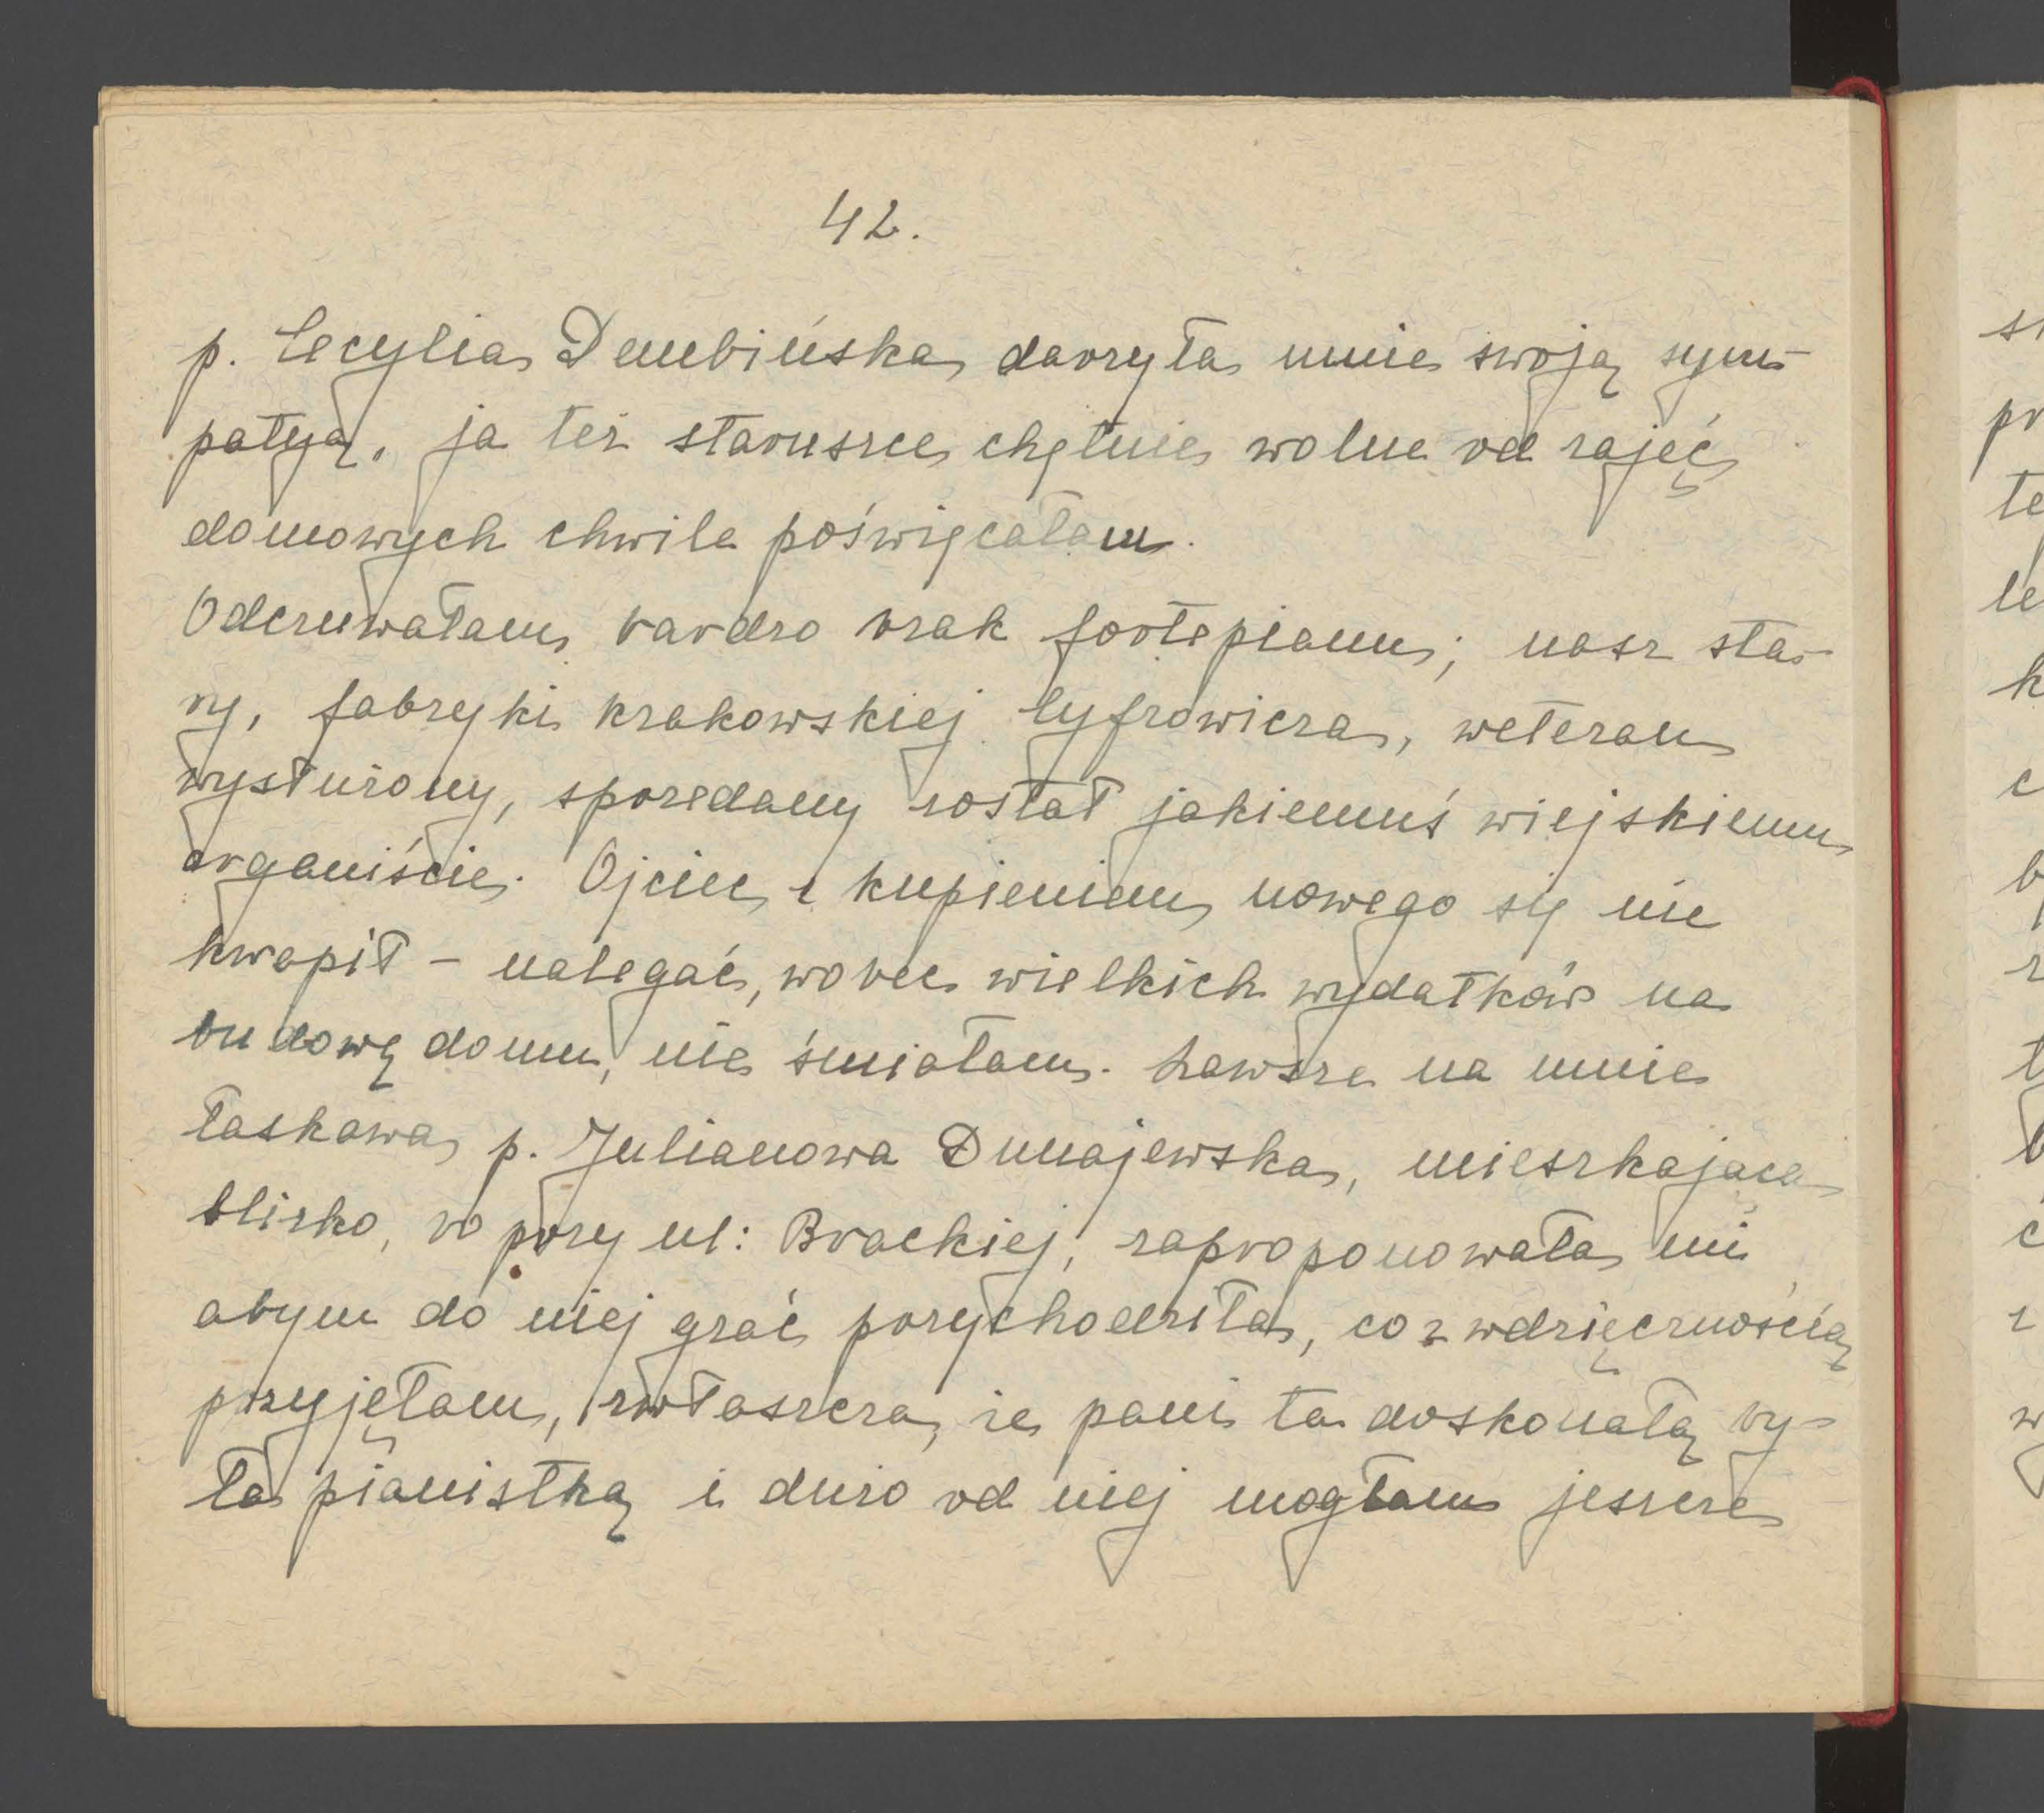 42.
p. Cecylia Dembińska darzyła mnie swoją sym-
patyą, ja też staruszce chętnie wolne od zajęć
domowych chwile poświęcałam.
Odczuwałam bardzo brak fortepianu; nasz sta-
ry, fabryki krakowskiej Cyfrowicza, weteran
wysłużony, sprzedany został jakiemuś wiejskiemu
organiście. Ojciec z kupieniem nowego się nie
kwapił – nalegać, wobec wielkich wydatków na
budowę domu, nie śmiałam. Zawsze na mnie
łaskawa p. Julianowa Dunajewska, mieszkająca
blisko, bo przy ul: Brackiej, zaproponowała mi
abym do niej grać przychodziła, co z wdzięcznością
przyjęłam, zwłaszcza, że pani ta doskonałą by-
ła pianistką i dużo od niej mogłam jeszcze